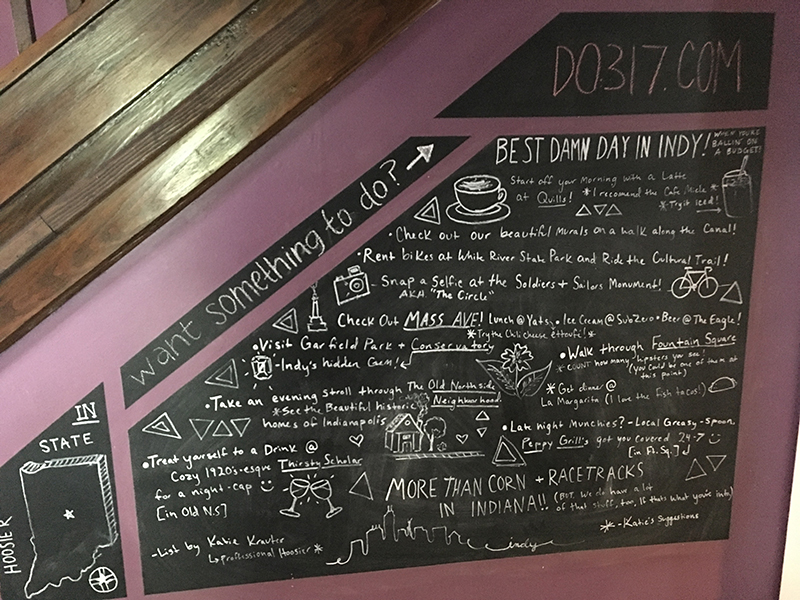 DO317.COM
want something to do?
BEST DAMN DAY IN INDY!
WHEN YOU'RE
BALLIN' ON
A BUDGET!
Start off your Morning with a Latte
at Quills! *I recomend the Cafe Miele *
*Try it iced!
• Check out our beautiful Murals on a walk along the Canal!
• Rent bikes at White River State Park and Ride the Cultural Trail!
Snap a Selfie at the Soldiers + Sailors Monument!
AKA "The Circle"
Check Out MASS AVE! Lunch@Yats • Ice Cream @ SubZero • Beer@The Eagle!
*Try the Chili Cheese Ettoufé! *
• Visit Garfield Park + Conservatory
-Indy's hidden Gem!
• Walk through Fountain Square
*COUNT how many hipsters you see!
(you could be one of them at
this point)
* Get dinner @
La Margarita (I love the fish tacos!)
• Take an evening stroll through The Old Northside
Neighborhood!
*See the Beautiful historic
homes of Indianapolis
• Late night Munchies? - Local Greasy-spoon
Peppy Grill's got you covered 24-7
[in Ft. Sq.]
• Treat yourself to a Drink @
Cozy 1920's-esque Thirsty Scholar
for a night-cap
[in Old N.S]
MORE THAN CORN + RACETRACKS
IN INDIANA!! (BUT, we do have a lot
of that stuff, too, if thats what you're into)
* - Katie's Suggestions
-List by Katie Krauter
Professional Hoosier *
indy
IN
STATE
HOOSIER